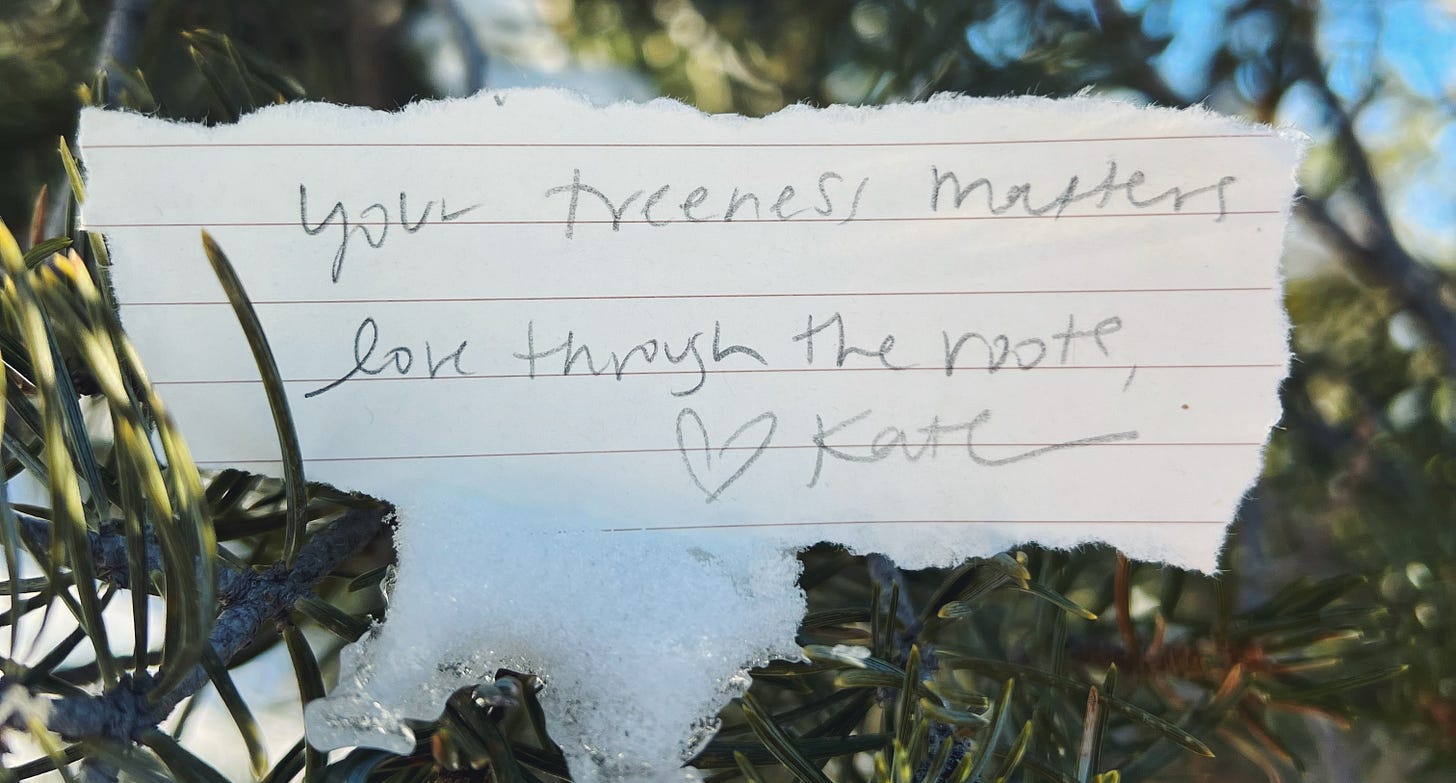 your treeness matters
love through the roots,
♡ Kate